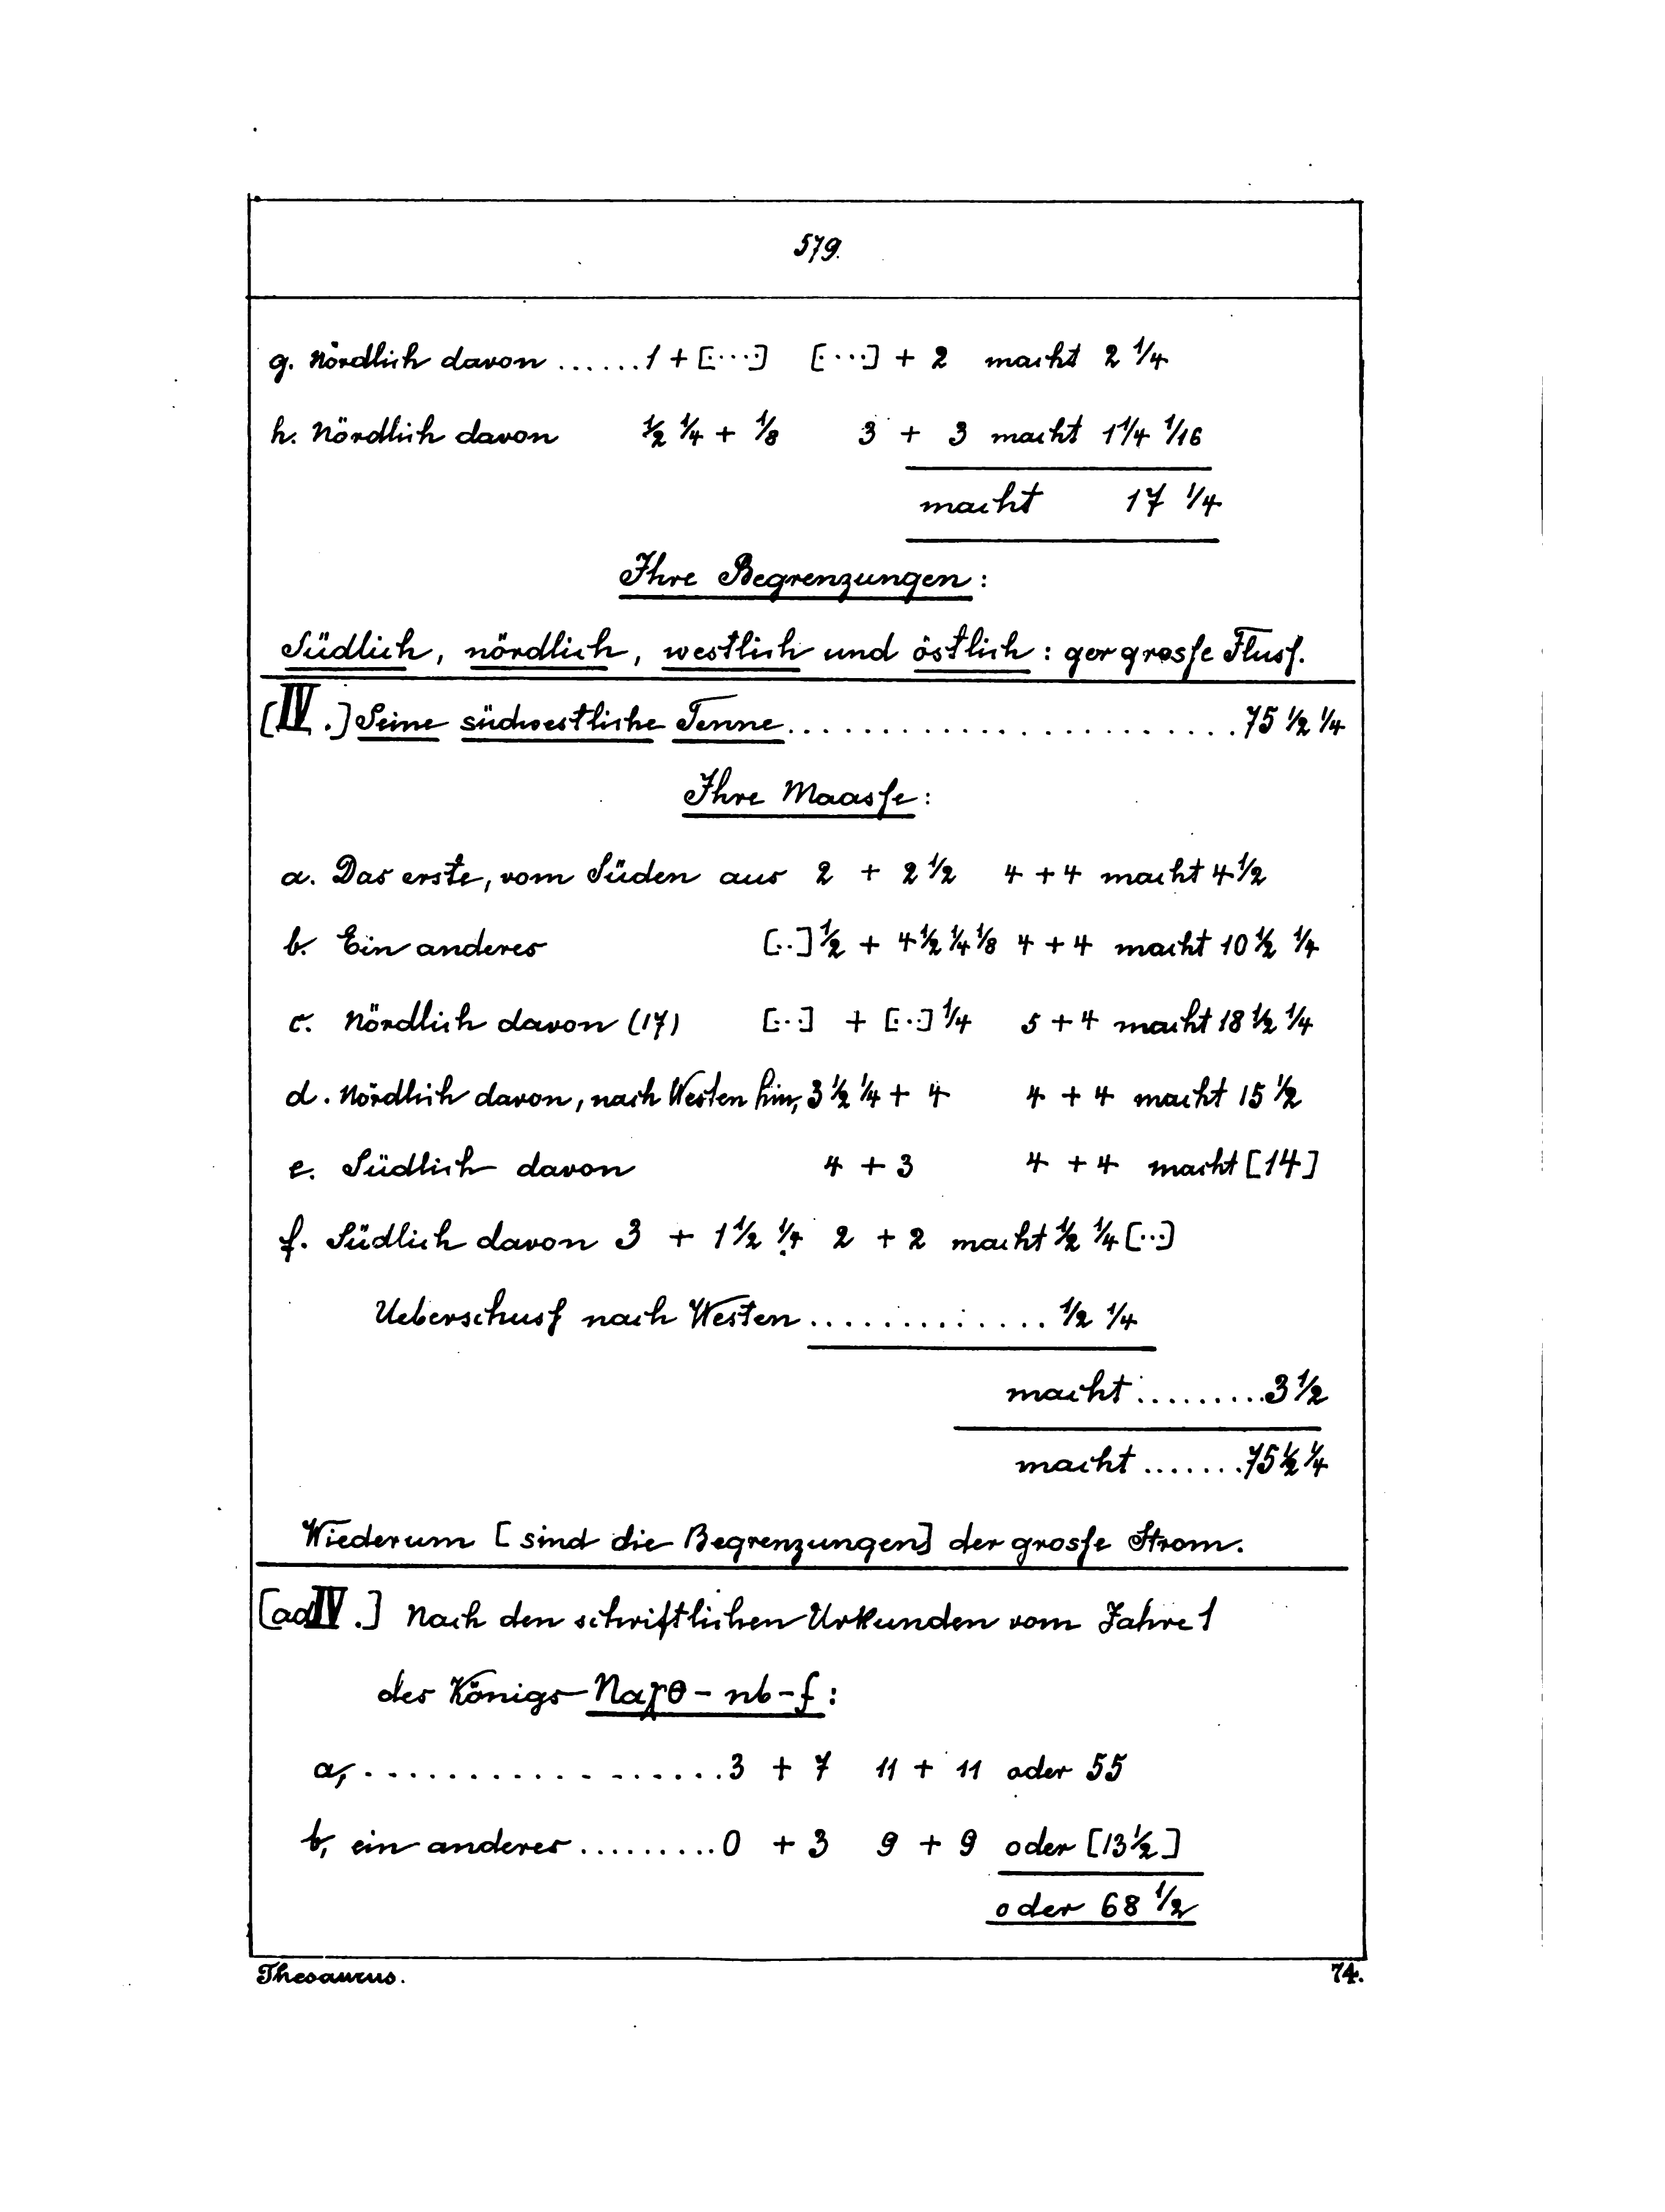 579.
g. Nördlich davon ......1 + [....] [....] + 2 macht 2 1/4
h. Nördlich davon 1/2 1/4 + 1/8 3 + 3 macht 1 1/4 1/16
macht 17 1/4
Ihre Begrenzungen:
Südlich, nördlich, westlich und östlich: ger grosse Fluss.
[IV.] Seine südwestliche Tenne........................75 1/2 1/4
Ihre Maasse:
a. Das erste, vom Süden aus 2 + 2 1/2 4 + 4 macht 4 1/2
b. Ein anderes [..] 1/2 + 4 1/2 1/4 1/8 4 + 4 macht 10 1/2 1/4
c. Nördlich davon (17) [...] + [...] 1/4 5 + 4 macht 18 1/2 1/4
d. Nördlich davon, nach Westen hin, 3 1/2 1/4 + 4 4 + 4 macht 15 1/2
e. Südlich davon 4 + 3 4 + 4 macht [14]
f. Südlich davon 3 + 1 1/2 1/4 2 + 2 macht 1/2 1/4 [...]
Ueberschuss nach Westen.............. 1/2 1/4
macht.........3 1/2
macht.......75 1/2 1/4
Wiederum [sind die Begrenzungen] der grosse Strom.
[ad IV.] Nach den schriftlichen Urkunden vom Jahre 1
des Königs Naχθ-nb-f:
a, ..................3 + 7 11 + 11 oder 55
b, ein anderes.........0 + 3 9 + 9 oder [13 1/2]
oder 68 1/2
Thesaurus. 74.